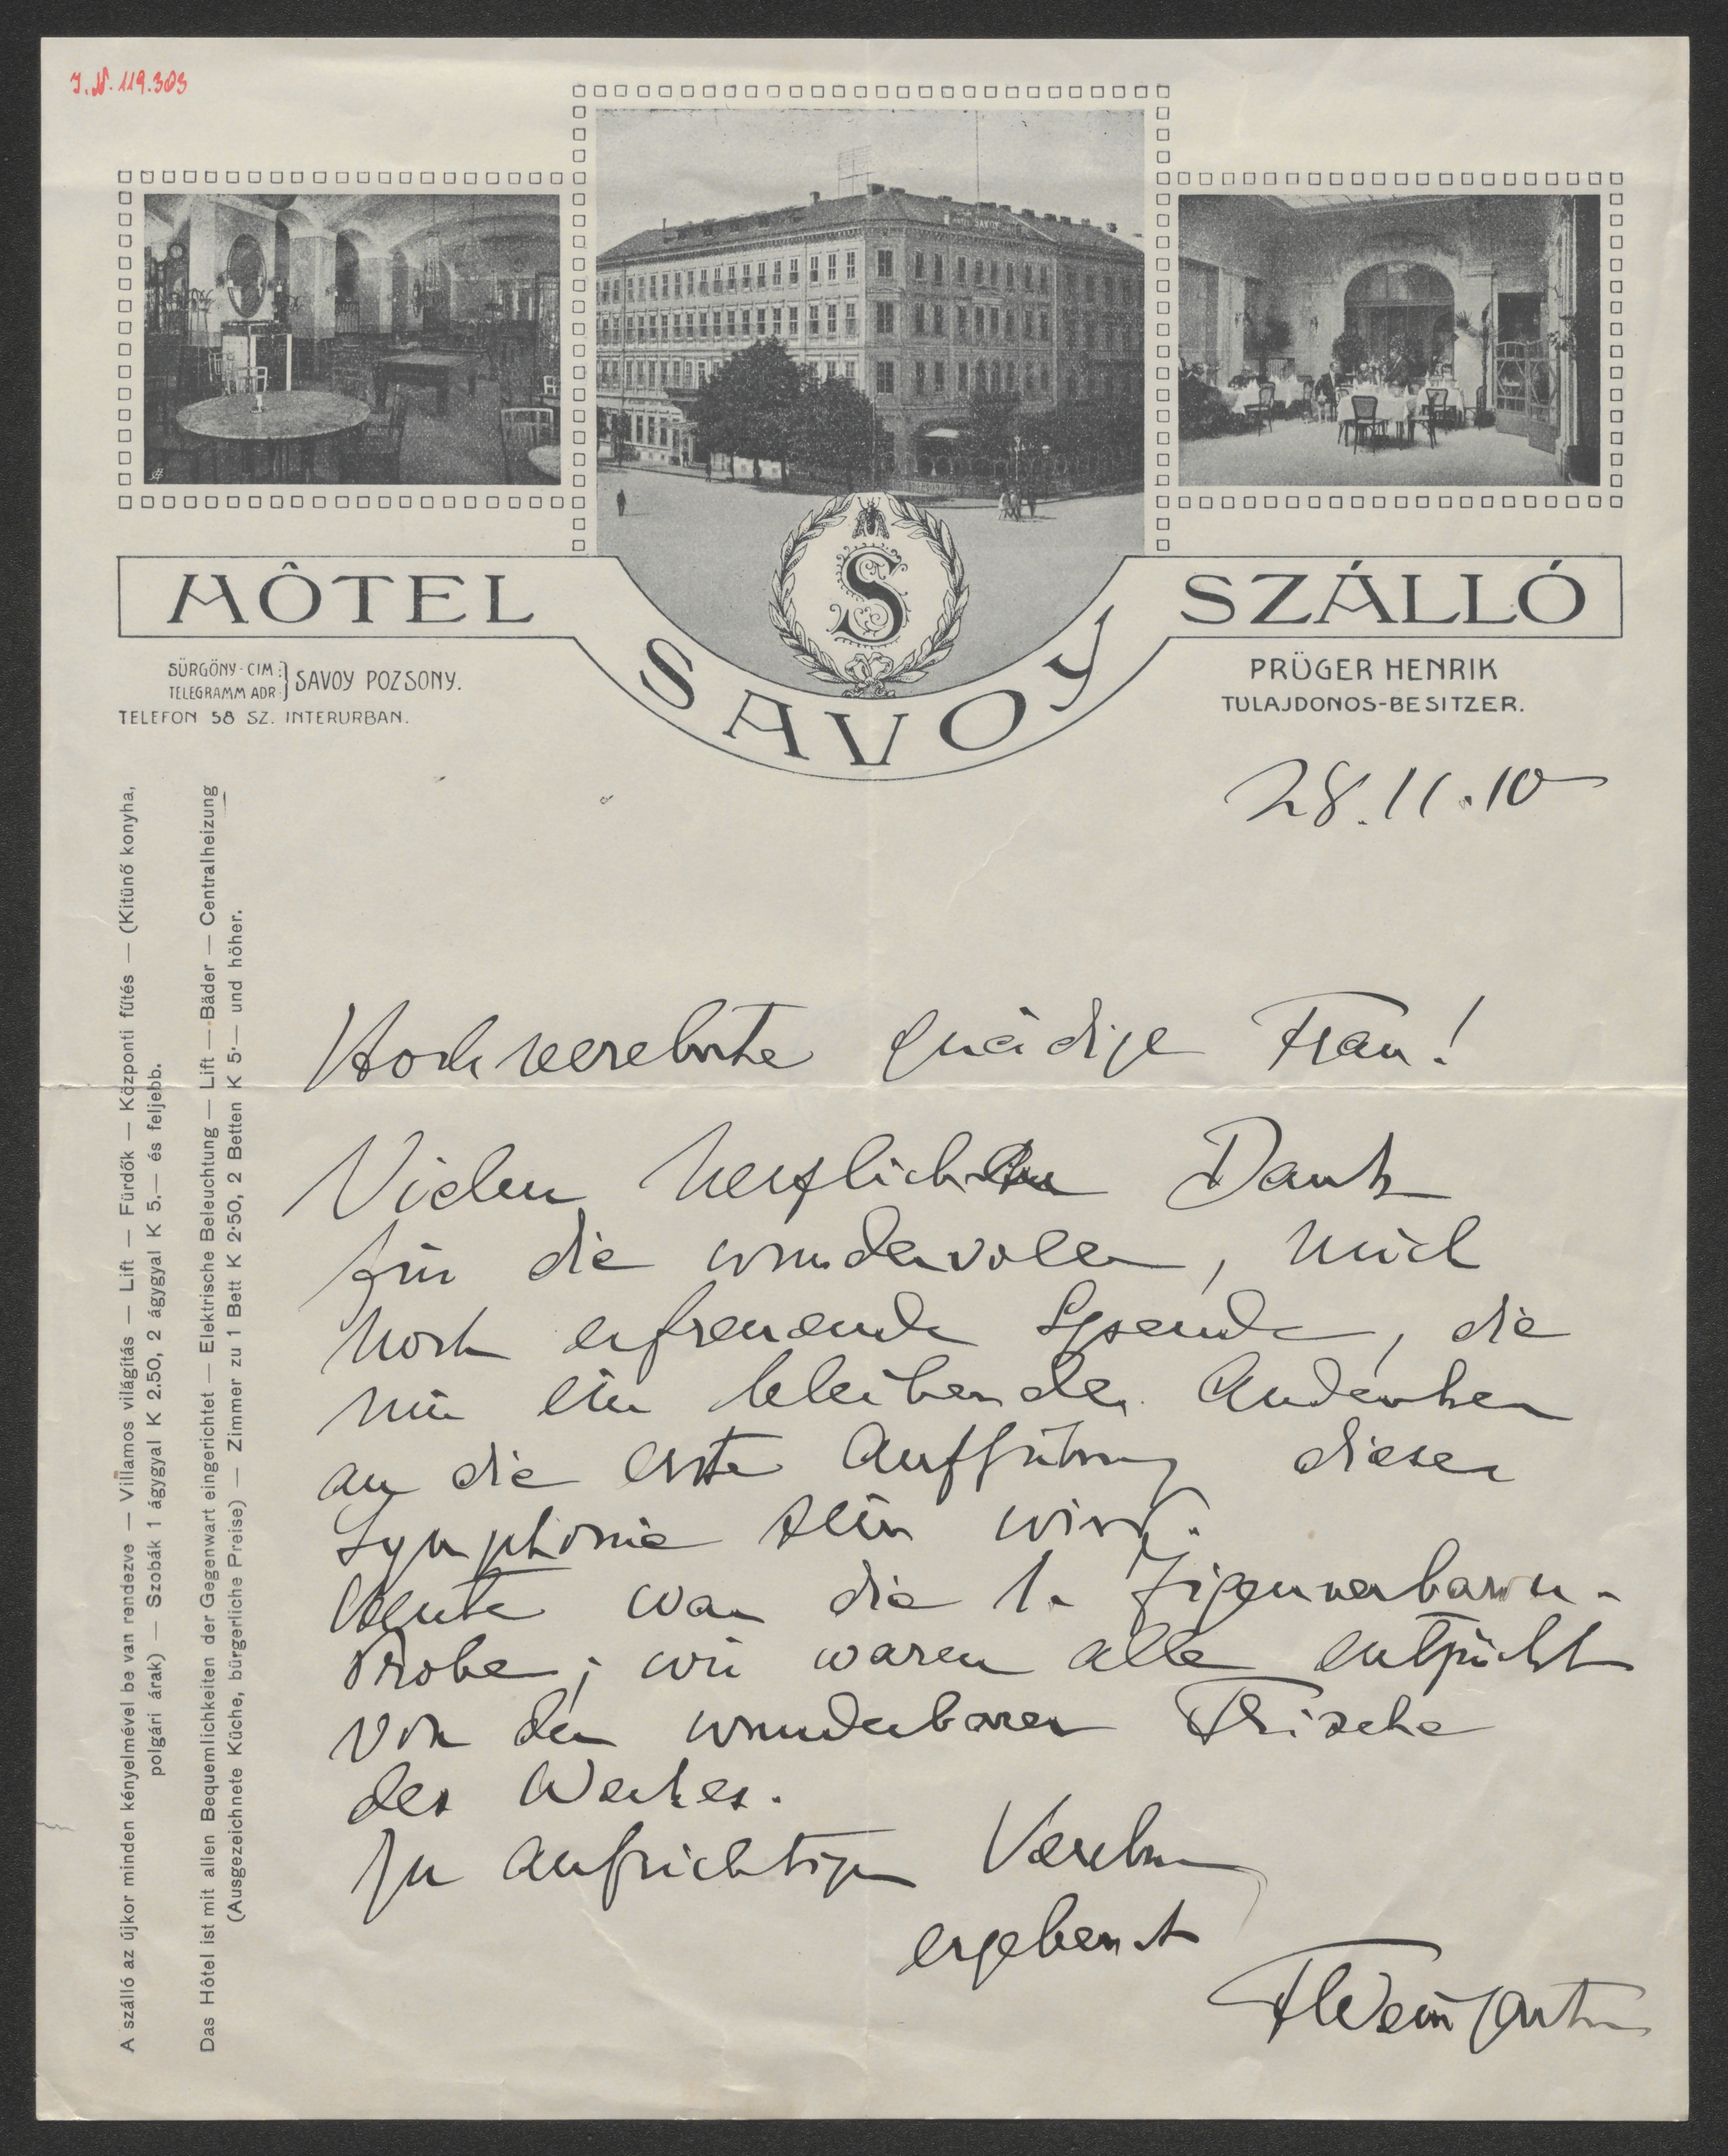 J.N. 119.303
HÔTEL SAVOY SZÁLLÓ
S
SÜRGÖNY-CIM:
TELEGRAMM ADR:
SAVOY POZSONY.
TELEFON 58 SZ. INTERURBAN.
PRÜGER HENRIK
TULAJDONOS-BESITZER.
A szálló az újkor minden kényelmével be van rendezve — Villamos világítás — Lift — Fürdők — Központi fűtés — (Kitünő konyha,
polgári árak) — Szobák 1 ágygyal K 2.50, 2 ágygyal K 5.— és feljebb.
Das Hôtel ist mit allen Bequemlichkeiten der Gegenwart eingerichtet — Elektrische Beleuchtung — Lift — Bäder — Centralheizung
(Ausgezeichnete Küche, bürgerliche Preise) — Zimmer zu 1 Bett K 2·50, 2 Betten K 5·— und höher.
28.11.10
Hochverehrte gnädige Frau!
Vielen herzlichen Dank
für die wundervolle, mich
hoch erfreuende Spende, die
mir ein bleibendes Andenken
an die erste Aufführung dieser
Symphonie sein wird.
Heute war die 1. Zigeunerbaron-
Probe; wir waren alle entzückt
von der wunderbaren Frische
des Werkes.
In aufrichtiger Verehrung
ergebenst
FWeingartner